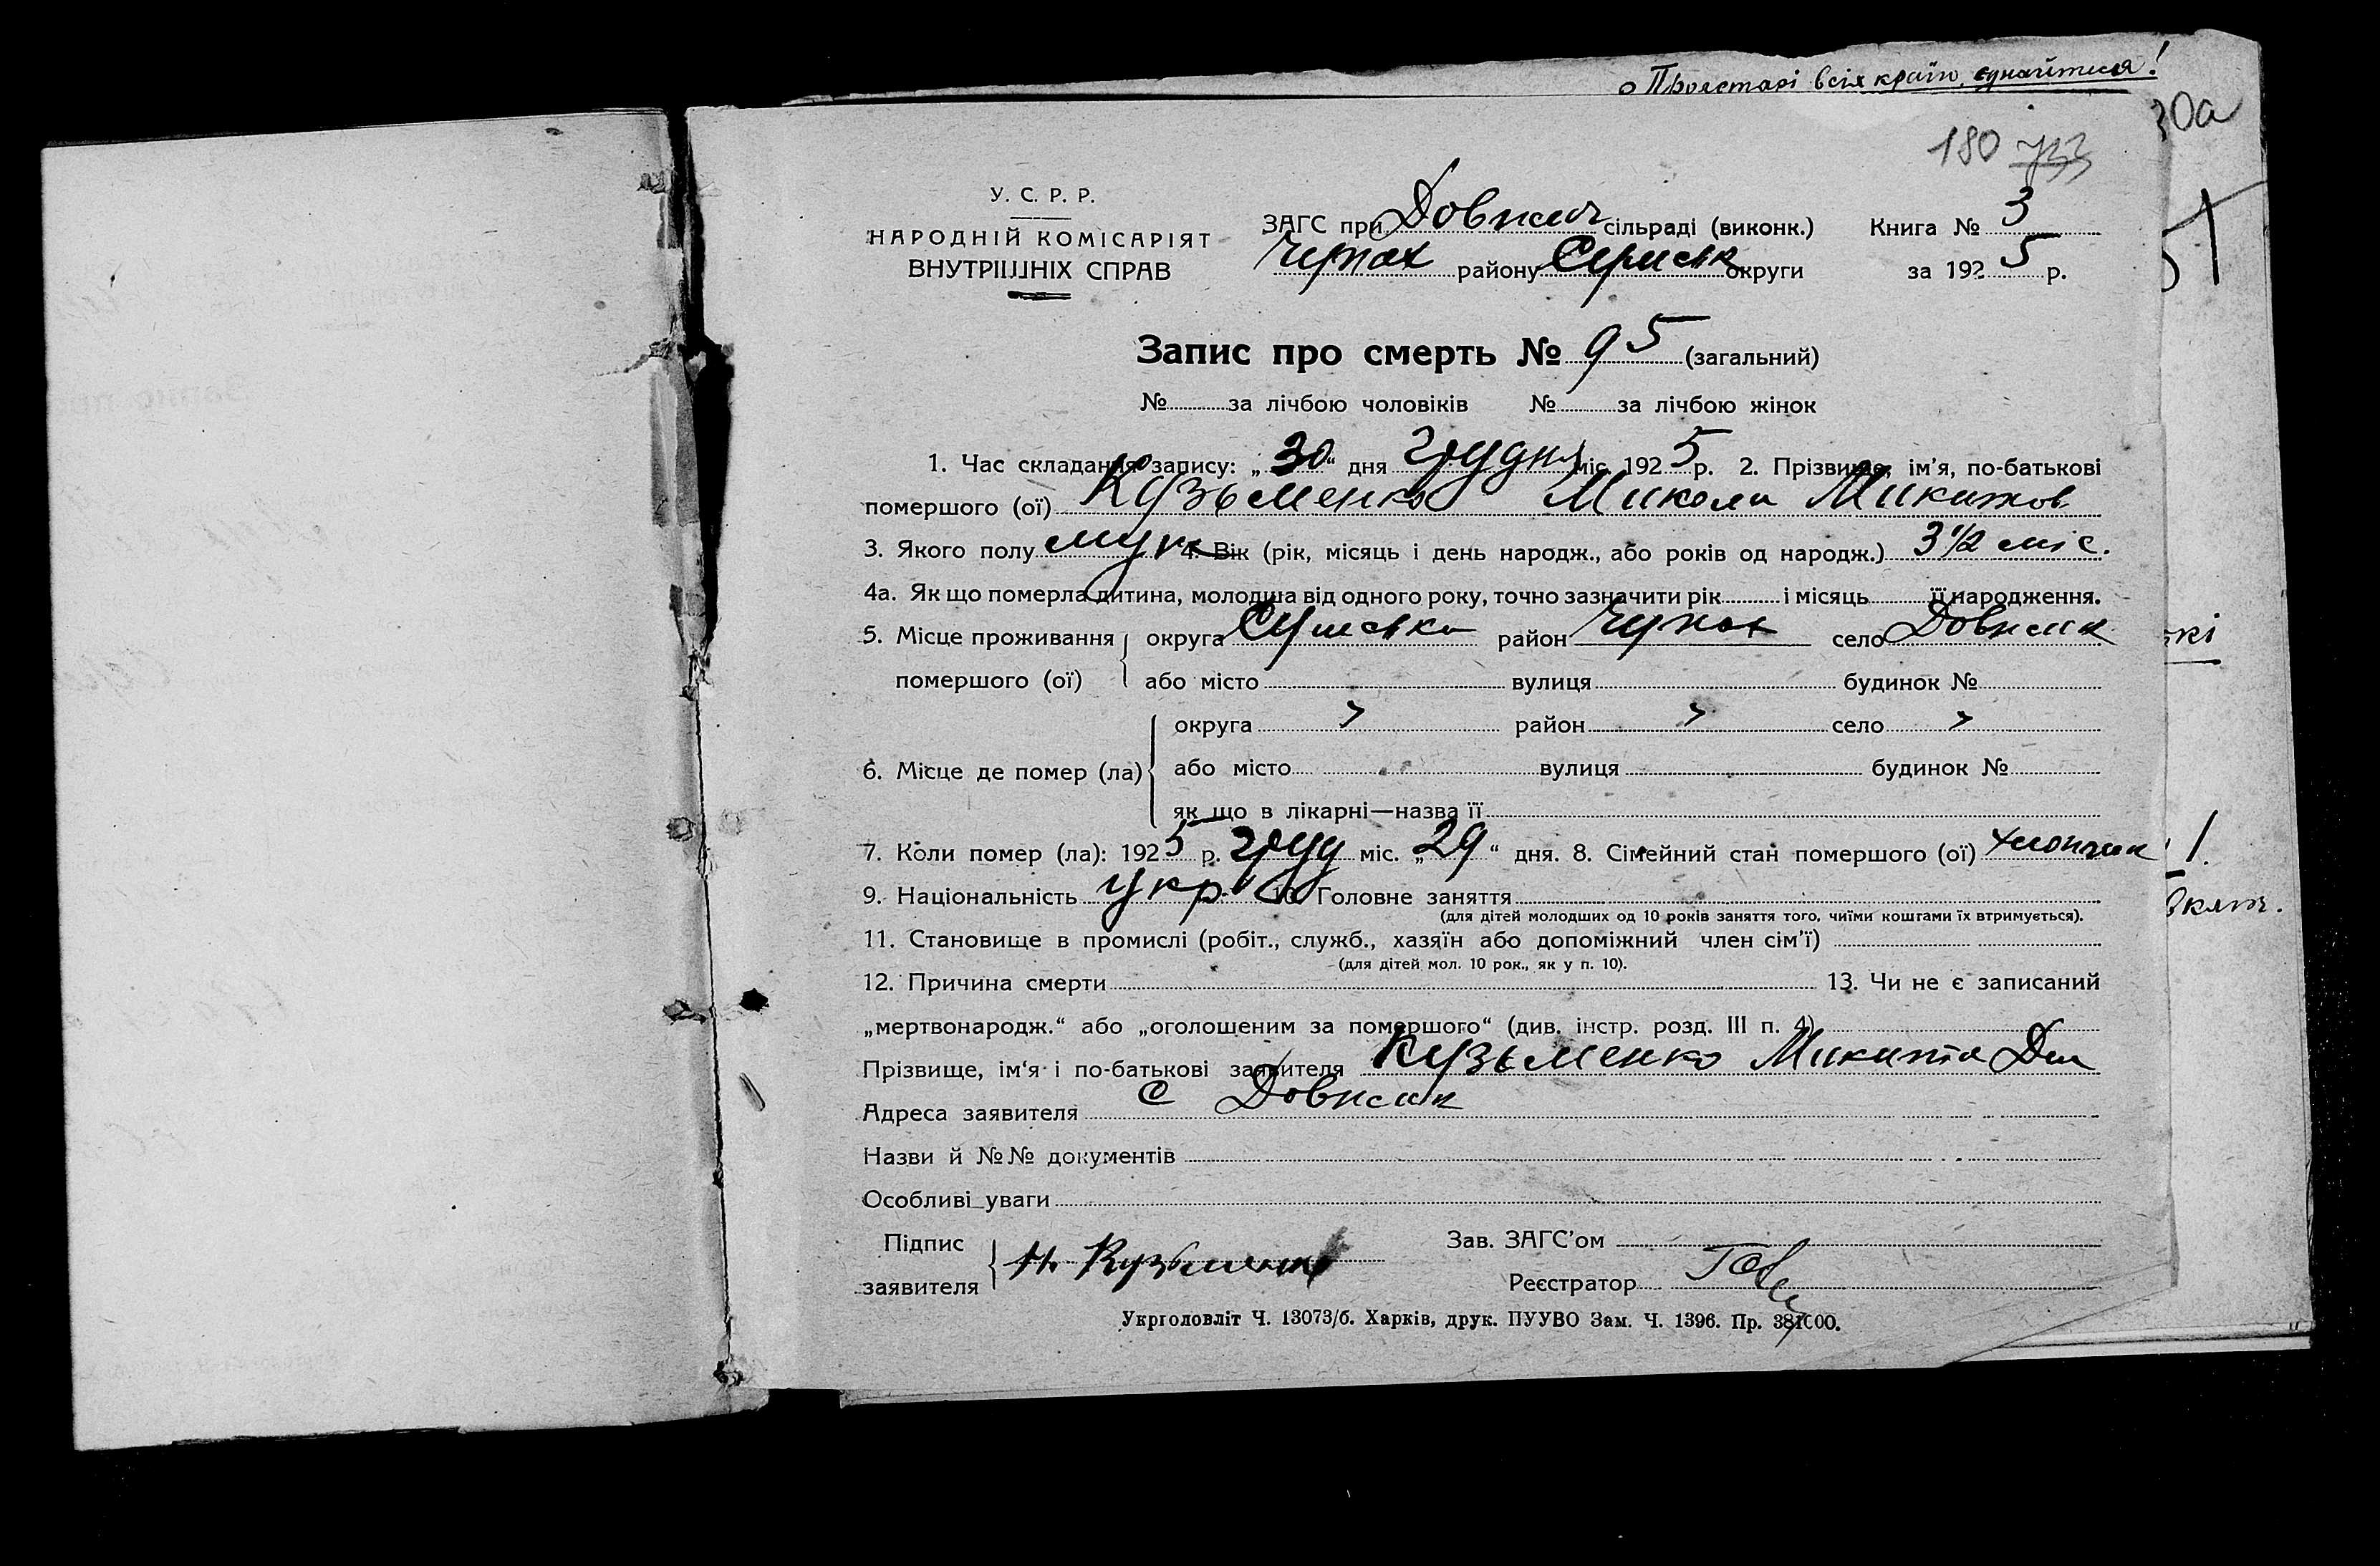 Пролетарі всіх країн, єднайтеся!
30а
180
У. С. Р. Р.
НАРОДНІЙ КОМІСАРІЯТ
ВНУТРІШНІХ СПРАВ
ЗАГС при Довжич сільраді (виконк.) Книга № 3
Чупах району Сумськ округи за 1925 р.
Запис про смерть № 95 (загальний)
№ за лічбою чоловіків № за лічбою жінок
1. Час складання запису: „30“ дня грудня міс. 1925 р. 2. Прізвище, ім'я, по-батькові
помершого (ої) Кузьменко Микола Микитов
3. Якого полу муж 4. Вік (рік, місяць і день народж., або років од народж.) 3 1/2 міс.
4а. Як що померла дитина, молодша від одного року, точно зазначити рік і місяць її народження.
5. Місце проживання округа Сумська район Чупах село Довжик
помершого (ої) або місто вулиця будинок №
округа район село
6. Місце де помер (ла) або місто вулиця будинок №
як що в лікарні—назва її
7. Коли помер (ла): 1925 р. груд міс. „29“ дня. 8. Сімейний стан помершого (ої) хлопчик
9. Національність укр 10. Головне заняття
(для дітей молодших од 10 років заняття того, чиїми коштами їх втримується).
11. Становище в промислі (робіт., служб., хазяїн або допоміжний член сім'ї)
(для дітей мол. 10 рок., як у п. 10).
12. Причина смерти 13. Чи не є записаний
„мертвонародж.“ або „оголошеним за помершого“ (див. інстр. розд. III п. 4)
Прізвище, ім'я і по-батькові заявителя Кузьменко Микита Дм
Адреса заявителя с Довжик
Назви й №№ документів
Особливі уваги
Підпис заявителя Кузьменко Зав. ЗАГС'ом
Реєстратор
Укрголовліт Ч. 13073/б. Харків, друк. ПУУВО Зам. Ч. 1396. Пр. 381000.